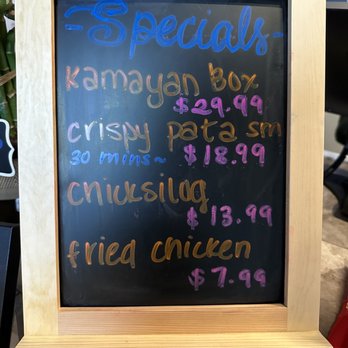 -Specials-
Kamayan Box
$29.99
crispy pata sm
30 mins~ $18.99
chicksilog
$13.99
fried chicken
$7.99